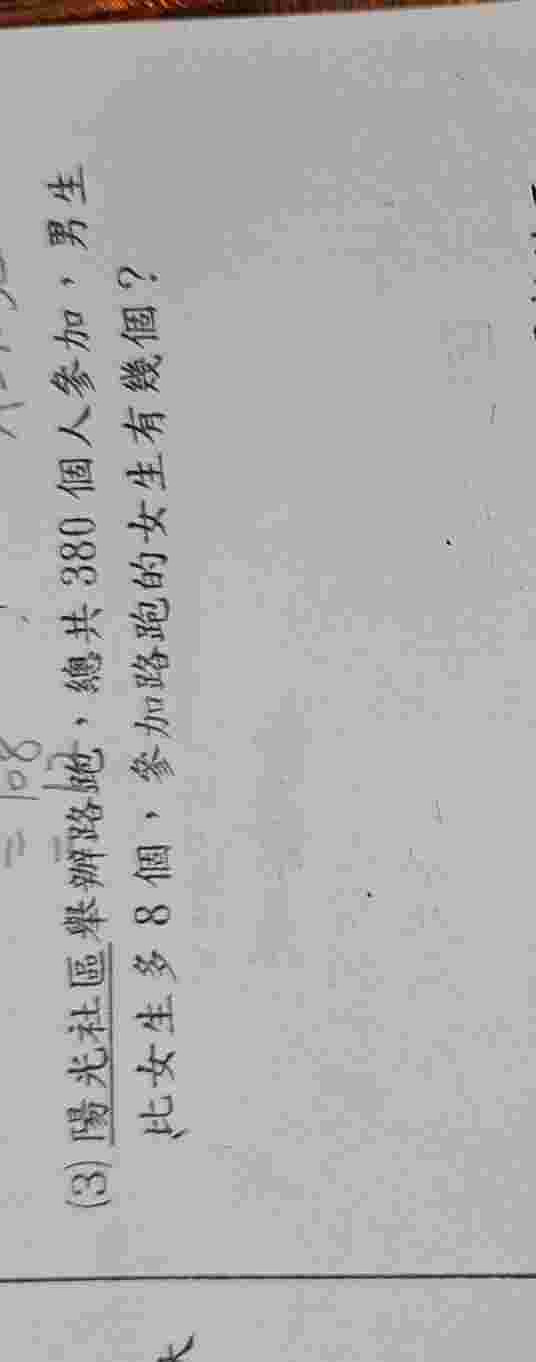 = 108
(3) 陽光社區舉辦路跑,總共 380 個人參加,男生
比女生多 8 個,參加路跑的女生有幾個?